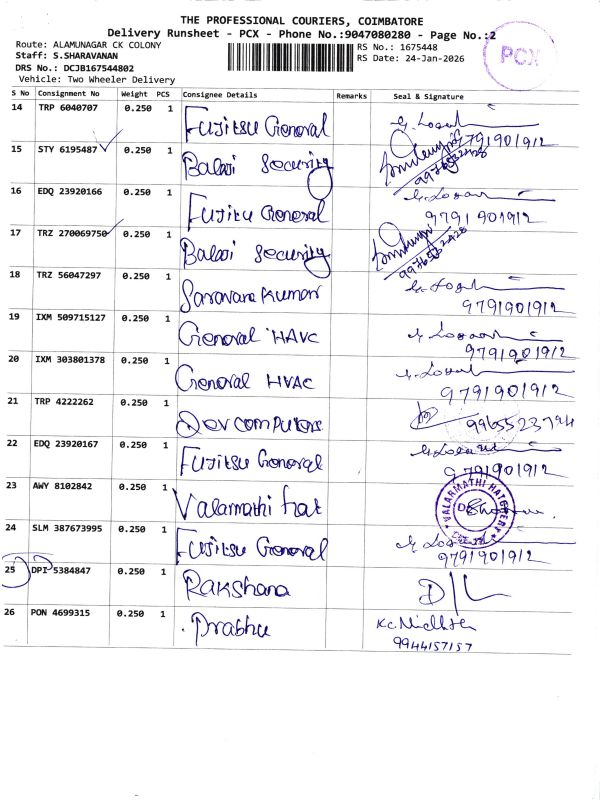 THE PROFESSIONAL COURIERS, COIMBATORE
Delivery Runsheet - PCX - Phone No.:9047080280 - Page No.:2
Route: ALAMUNAGAR CK COLONY
RS No.: 1675448
Staff: S.SHARAVANAN
RS Date: 24-Jan-2026
DRS No.: DCJB167544802
Vehicle: Two Wheeler Delivery
PCX
S No Consignment No Weight PCS Consignee Details Remarks Seal & Signature
14 TRP 6040707 0.250 1 Fujitsu General
9791901912
15 STY 6195487 0.250 1 Balaji Security
16 EDQ 23920166 0.250 1 Fujitsu General
9791901912
17 TRZ 270069750 0.250 1 Balaji Security
18 TRZ 56047297 0.250 1 Saravana Kumar
9791901912
19 IXM 509715127 0.250 1 General HAVC
9791901912
20 IXM 303801378 0.250 1 General HVAC
9791901912
21 TRP 4222262 0.250 1 Dev computers
22 EDQ 23920167 0.250 1 Fujitsu General
9791901912
23 AWY 8102842 0.250 1 Valarmathi hat
VALARMATHI HATCHERY
24 SLM 387673995 0.250 1 Fujitsu General
9791901912
25 DPI 5384847 0.250 1 Rakshana
26 PON 4699315 0.250 1 Prabhu
9944157157